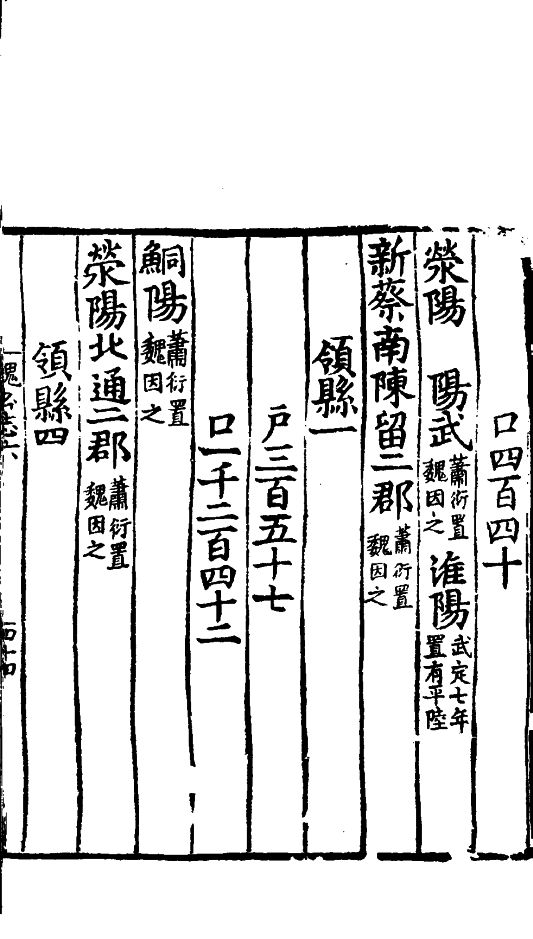 口四百四十
滎陽 陽武蕭衍置魏因之淮陽武定七年置有平陸
新蔡南陳留二郡蕭衍置魏因之
領縣一
戶三百五十七
口一千二百四十二
鮦陽蕭衍置魏因之
滎陽北通二郡蕭衍置魏因之
領縣四